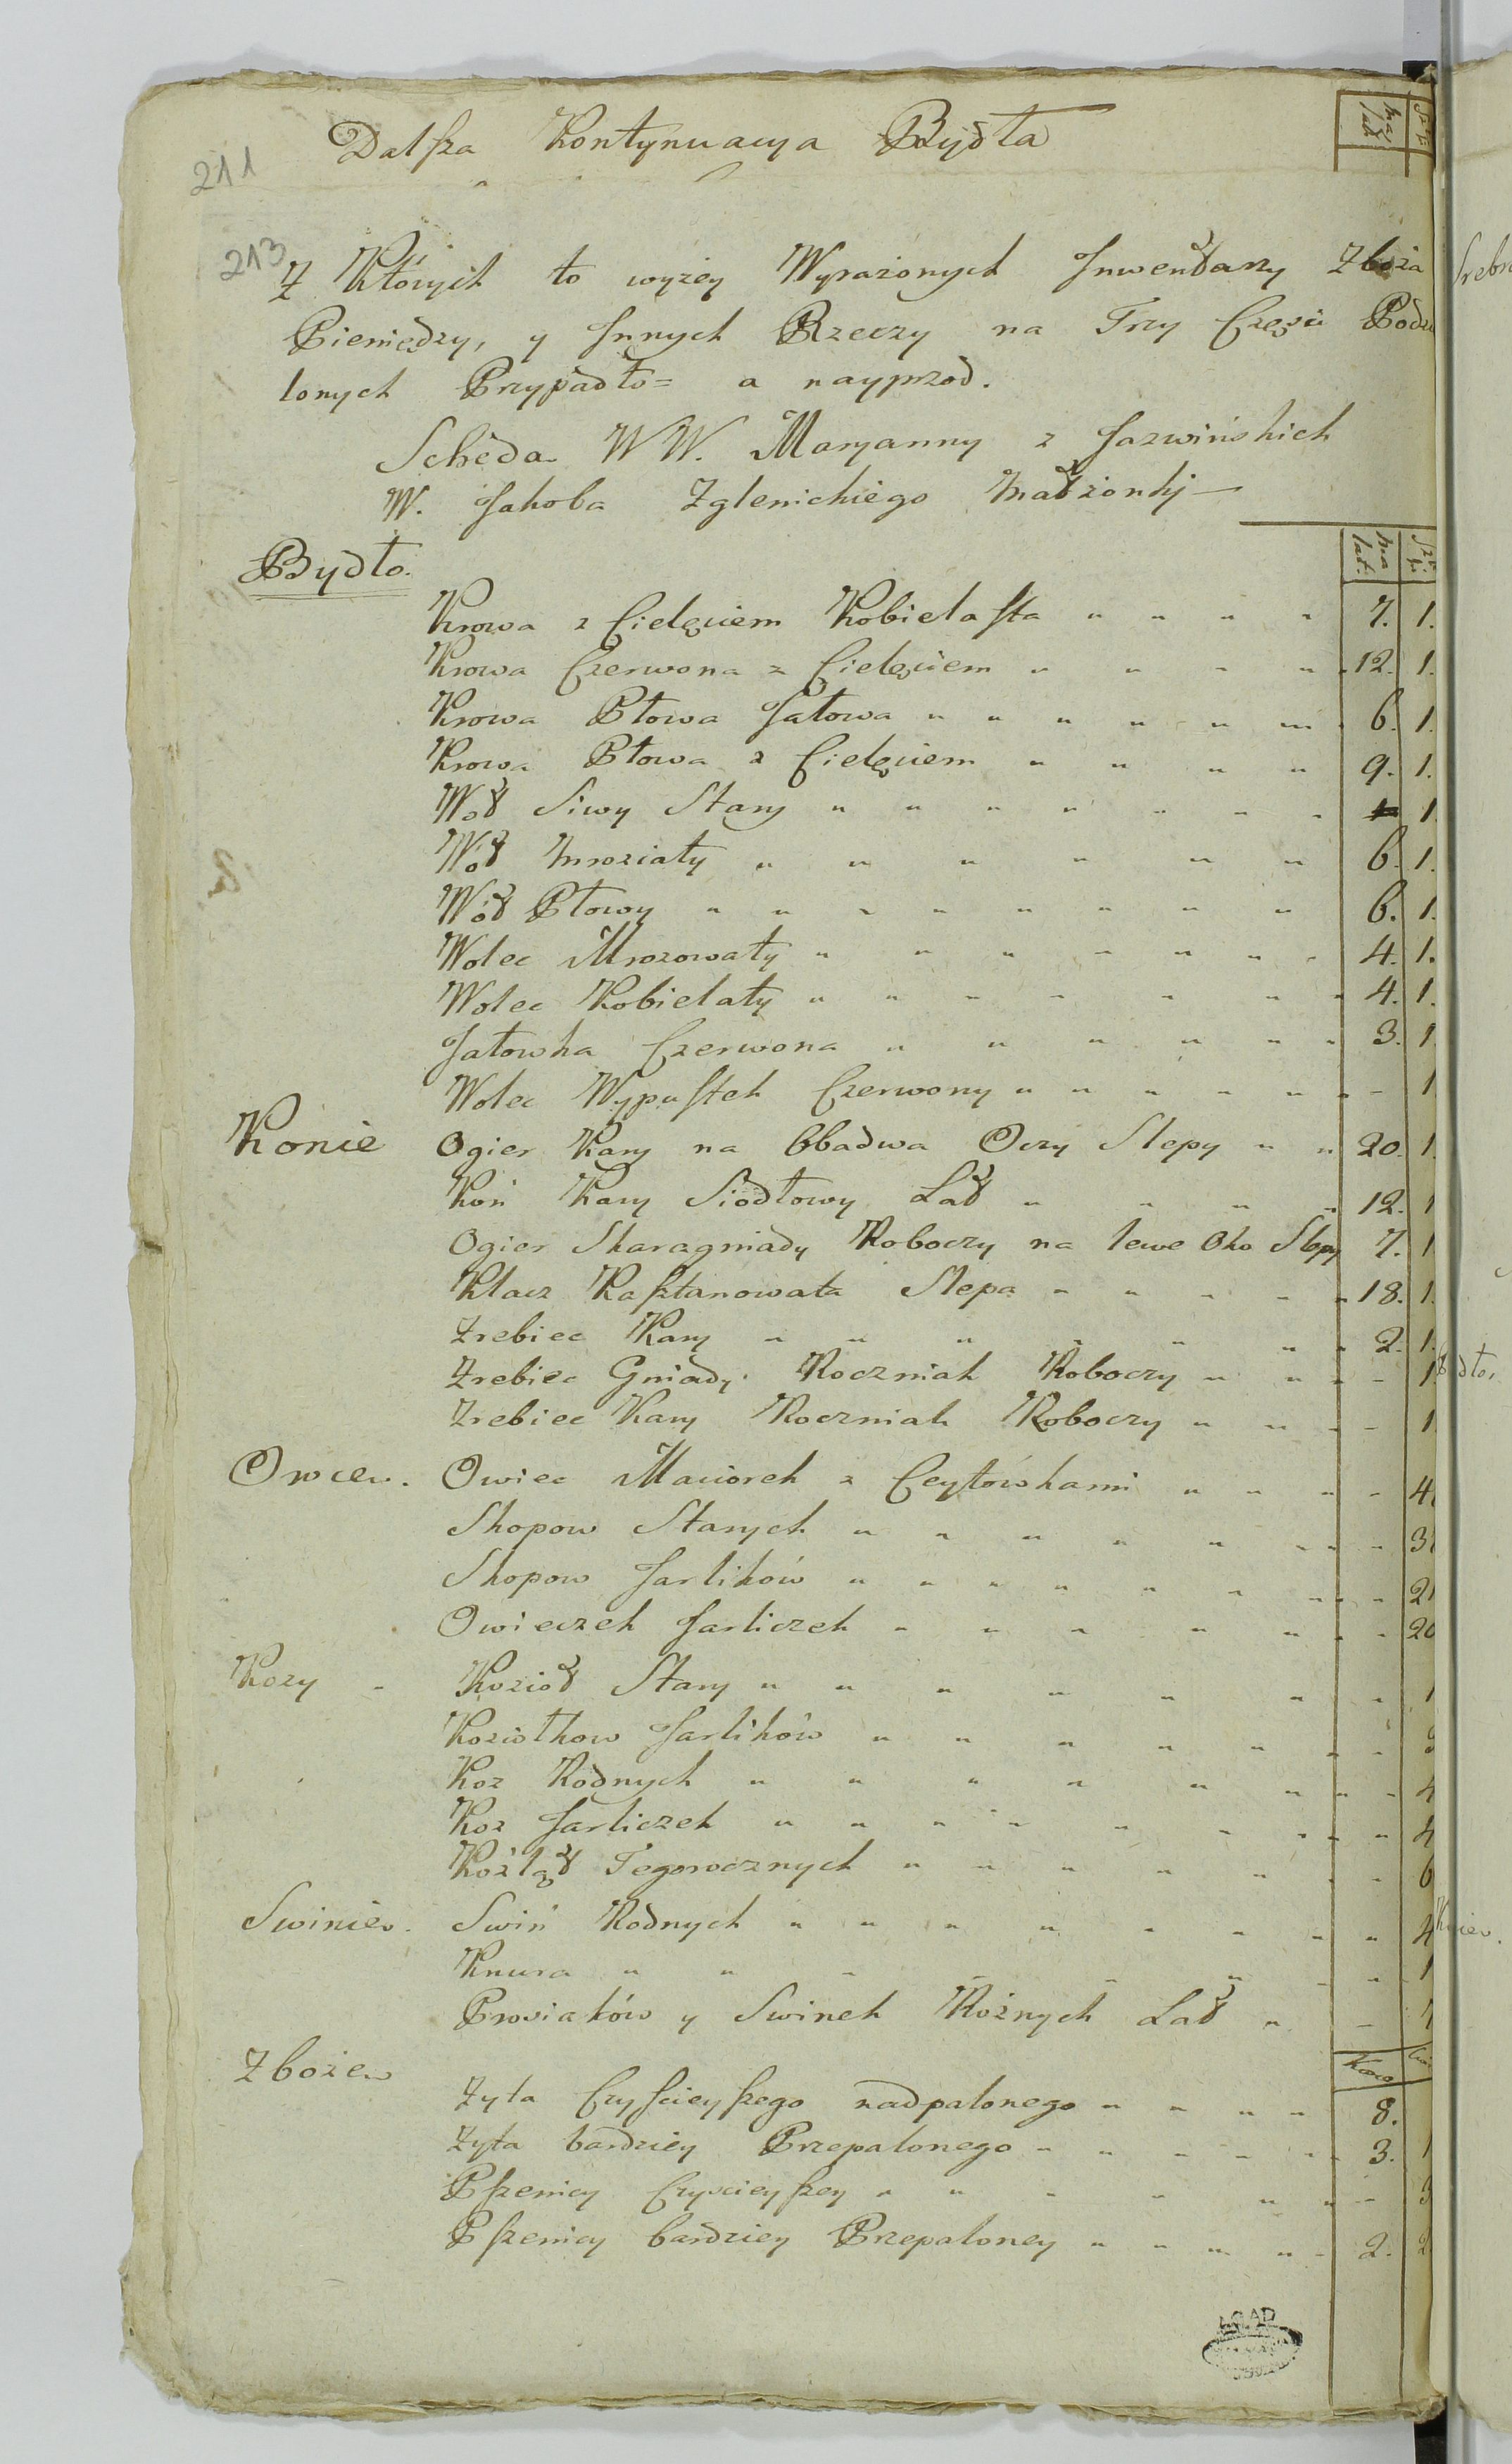 211
Dalsza Kontynuacya Bydła
ma lat
213
Z Których to wyzey Wyrazonych Inwentarzy Zboza
Pieniędzy, y Innych Rzeczy na Trzy Części Podzie
lonych Przypadło= a nayprzod.
Scheda WW. Maryanny z Jazwińskich
W. Jakoba Zglenickiego Małżonki
ma lat. Sztuk
Bydło.
Krowa z Cielęciem Kobielasta " " " " 7. 1.
Krowa Czerwona z Cielęciem " " " " 12. 1.
Krowa Płowa Jałowa " " " " " " 6. 1.
Krowa Płowa z Cielęciem " " " " 9. 1.
Wół Siwy Stary " " " " " " " 1
Wół mroziaty " " " " " " 6. 1.
Wół Płowy " " " " " " " " 6. 1.
Wolec Mrozowaty " " " " " " " 4. 1.
Wolec Kobielaty " " " " " " " 4. 1.
Jałowka Czerwona " " " " " " 3. 1
Wolec Wypustek Czerwony " " " " " " - 1
Konie Ogier Kary na Obadwa Oczy Slepy " " 20. 1
Koń Kary Siodłowy Lat " " " " 12. 1
Ogier Skarogniady Roboczy na lewe Oko Slepy 7. 1
Klacz Kasztanowata Slepa " " " " " 18. 1.
Zrebiec Kary " " " " " " " 2. 1.
Zrebiec Gniady Roczniak Roboczy " " " - 1
Zrebiec Kary Roczniak Roboczy " " " - 1
Owce. Owiec Maciorek z Ceytówkami " " " - 4
Skopow Starych " " " " " " " - 3
Skopow Jarlików " " " " " " " - 2
Owieczek Jarliczek " " " " " " - 20
Kozy - Kozioł Stary " " " " " " - 1
Koziołkow Jarlików " " " " " " -
Koz Rodnych " " " " " " " - 4
Koz Jarliczek " " " " " " " " 4
Koźląt Tegorocznych " " " " " " - 6
Swinie. Swiń Rodnych " " " " " " " " 4
Knura " " " " " " " " 1
Prosiaków y Swinek Rożnych Lat " -
Zboże
Korcy
Zyta Czyscieyszego nadpalonego " " " " 8.
Zyta bardziey Przepalonego " " " " " 3. 1
Pszenicy Czyscieyszey " " " " " " - 3
Pszenicy bardziey Przepaloney " " " " " 2. 2
AGAD